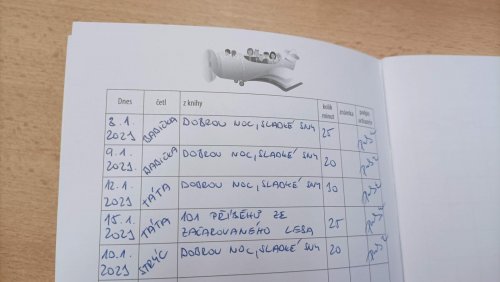 Dnes četl z knihy kolik minut známka podpis
8.1. 2021 BABIČKA DOBROU NOC, SLADKÉ SNY 25
9.1. 2021 BABIČKA DOBROU NOC, SLADKÉ SNY 20
12.1. 2021 TÁTA DOBROU NOC, SLADKÉ SNY 10
15.1. 2021 TÁTA 101 PŘÍBĚHŮ ZE
ZAČAROVANÉHO LESA 25
10.1. 2021 STRÝC DOBROU NOC, SLADKÉ SNY 20